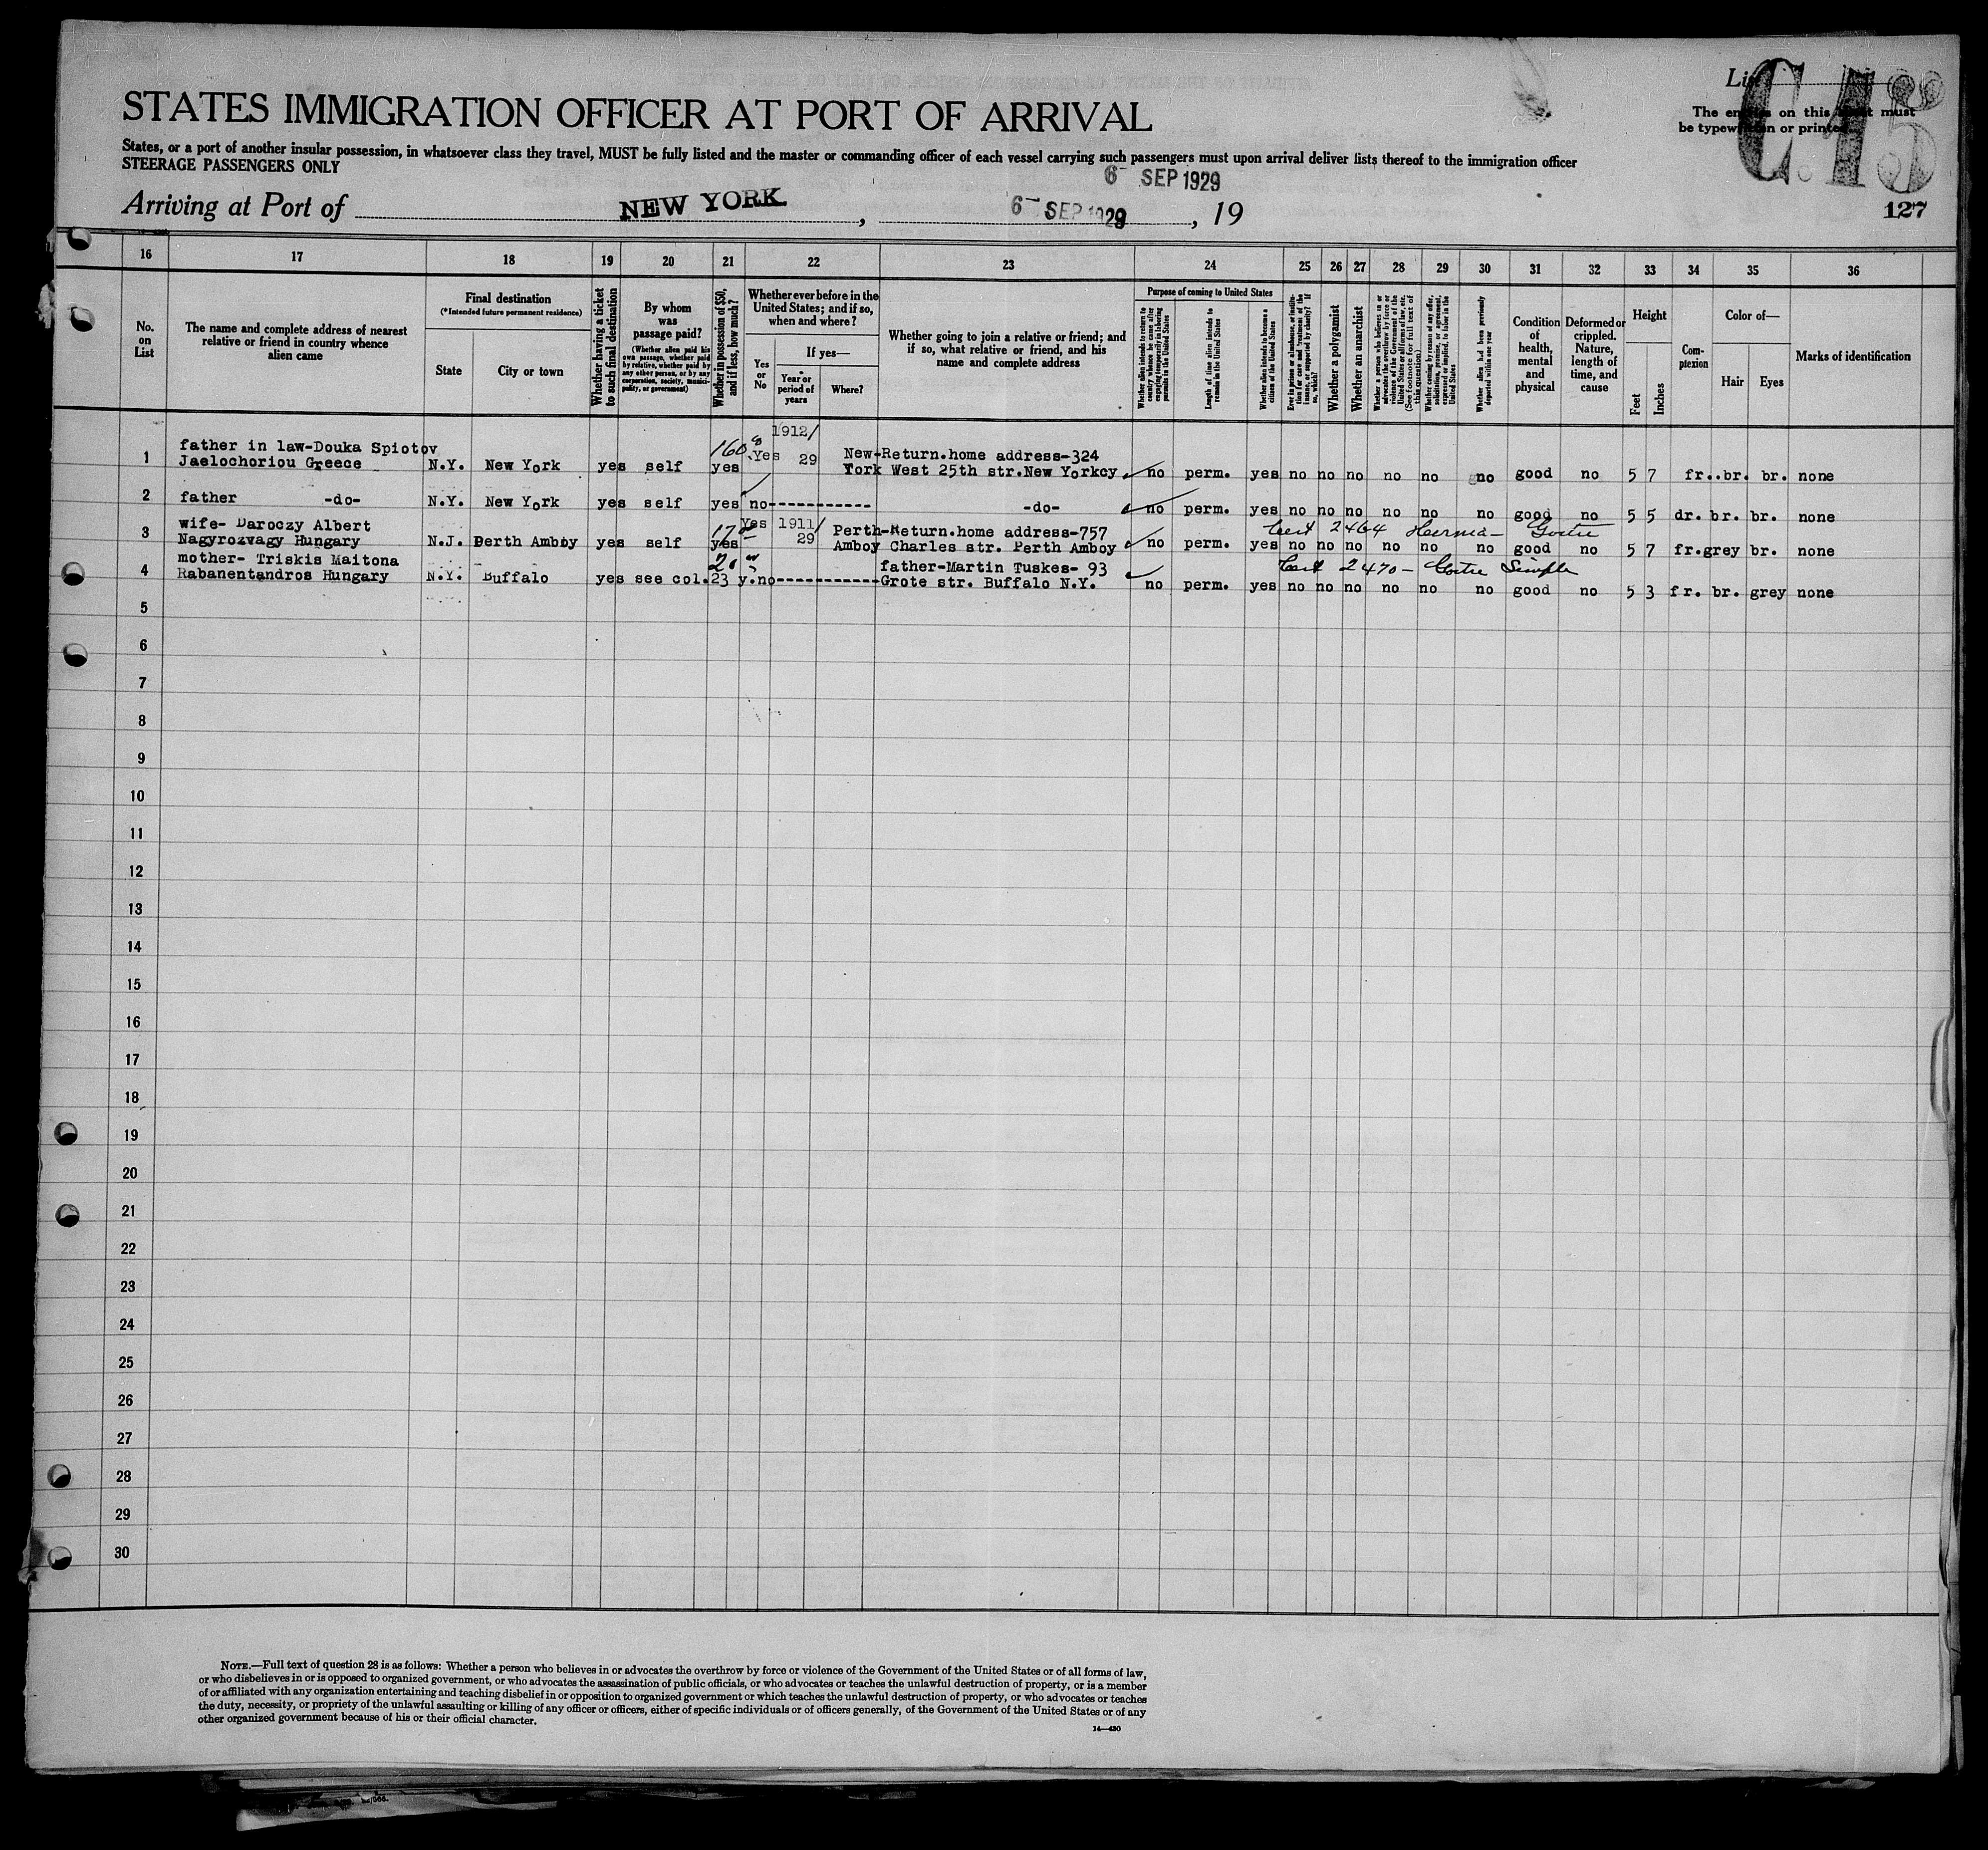 List
C. 15
The entries on this sheet must
be typewritten or printed
STATES IMMIGRATION OFFICER AT PORT OF ARRIVAL
States, or a port of another insular possession, in whatsoever class they travel, MUST be fully listed and the master or commanding officer of each vessel carrying such passengers must upon arrival deliver lists thereof to the immigration officer
STEERAGE PASSENGERS ONLY
6- SEP 1929
Arriving at Port of NEW YORK, 6- SEP 1929, 19
127
16 17 18 19 20 21 22 23 24 25 26 27 28 29 30 31 32 33 34 35 36
No. on List
The name and complete address of nearest relative or friend in country whence alien came
Final destination
(*Intended future permanent residence)
State
City or town
Whether having a ticket to such final destination
By whom was passage paid?
(Whether alien paid his own passage, whether paid by relative, whether paid by any other person, or by any corporation, society, municipality, or government)
Whether in possession of $50, and if less, how much?
Whether ever before in the United States; and if so, when and where?
Yes or No
If yes—
Year or period of years
Where?
Whether going to join a relative or friend; and if so, what relative or friend, and his name and complete address
Purpose of coming to United States
Whether alien intends to return to country whence he came after engaging temporarily in laboring pursuits in the United States
Length of time alien intends to remain in the United States
Whether alien intends to become a citizen of the United States
Ever in prison or almshouse, or institution for care and treatment of the insane, or supported by charity? If so, which?
Whether a polygamist
Whether an anarchist
Whether a person who believes in or advocates the overthrow by force or violence of the Government of the United States or all forms of law, etc. (See footnote for full text of this question)
Whether coming by reason of any offer, solicitation, promise, or agreement, expressed or implied, to labor in the United States
Whether alien had been previously deported within one year
Condition of health, mental and physical
Deformed or crippled. Nature, length of time, and cause
Height
Feet
Inches
Complexion
Color of—
Hair
Eyes
Marks of identification
160 1912/
father in law-Douka Spiotov Yes 29 New-Return.home address-324
1 Jaelochoriou Greece N.Y. New York yes self yes York West 25th str.New Yorkcy no perm. yes no no no no no no good no 5 7 fr..br. br. none
2 father -do- N.Y. New York yes self yes no----------- -do- no perm. yes no no no no no no good no 5 5 dr. br. br. none
wife- Daroczy Albert 170 Yes 1911/ Perth-Return.home address-757 Cert 2464 Hernia- Goitre
3 Nagyrozvagy Hungary N.J. Perth Amboy yes self yes 29 Amboy Charles str. Perth Amboy no perm. yes no no no no no no good no 5 7 fr.grey br. none
mother- Triskis Maitona 20 father-Martin Tuskes- 93 Cert 2470- Goitre Simple
4 Rabanentandros Hungary N.Y. Buffalo yes see col.23 y.no-----------Grote str. Buffalo N.Y. no perm. yes no no no no no no good no 5 3 fr. br. grey none
5
6
7
8
9
10
11
12
13
14
15
16
17
18
19
20
21
22
23
24
25
26
27
28
29
30
NOTE.—Full text of question 28 is as follows: Whether a person who believes in or advocates the overthrow by force or violence of the Government of the United States or of all forms of law,
or who disbelieves in or is opposed to organized government, or who advocates the assassination of public officials, or who advocates or teaches the unlawful destruction of property, or is a member
of or affiliated with any organization entertaining and teaching disbelief in or opposition to organized government or which teaches the unlawful destruction of property, or who advocates or teaches
the duty, necessity, or propriety of the unlawful assaulting or killing of any officer or officers, either of specific individuals or of officers generally, of the Government of the United States or of any
other organized government because of his or their official character.
14—430